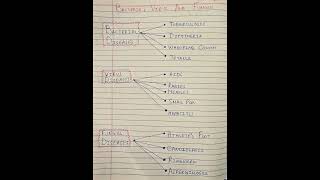 Bacterial, Virus And Fungus
Bacterial Diseases
Tuberculosis
Diptheria
Whooping Cough
Tetanus
Virus Diseases
Aids
Rabies
Measles
Small Pox
Fungal Diseases
Athlete's Foot
Candidiasis
Ringworm
Aspergillosis